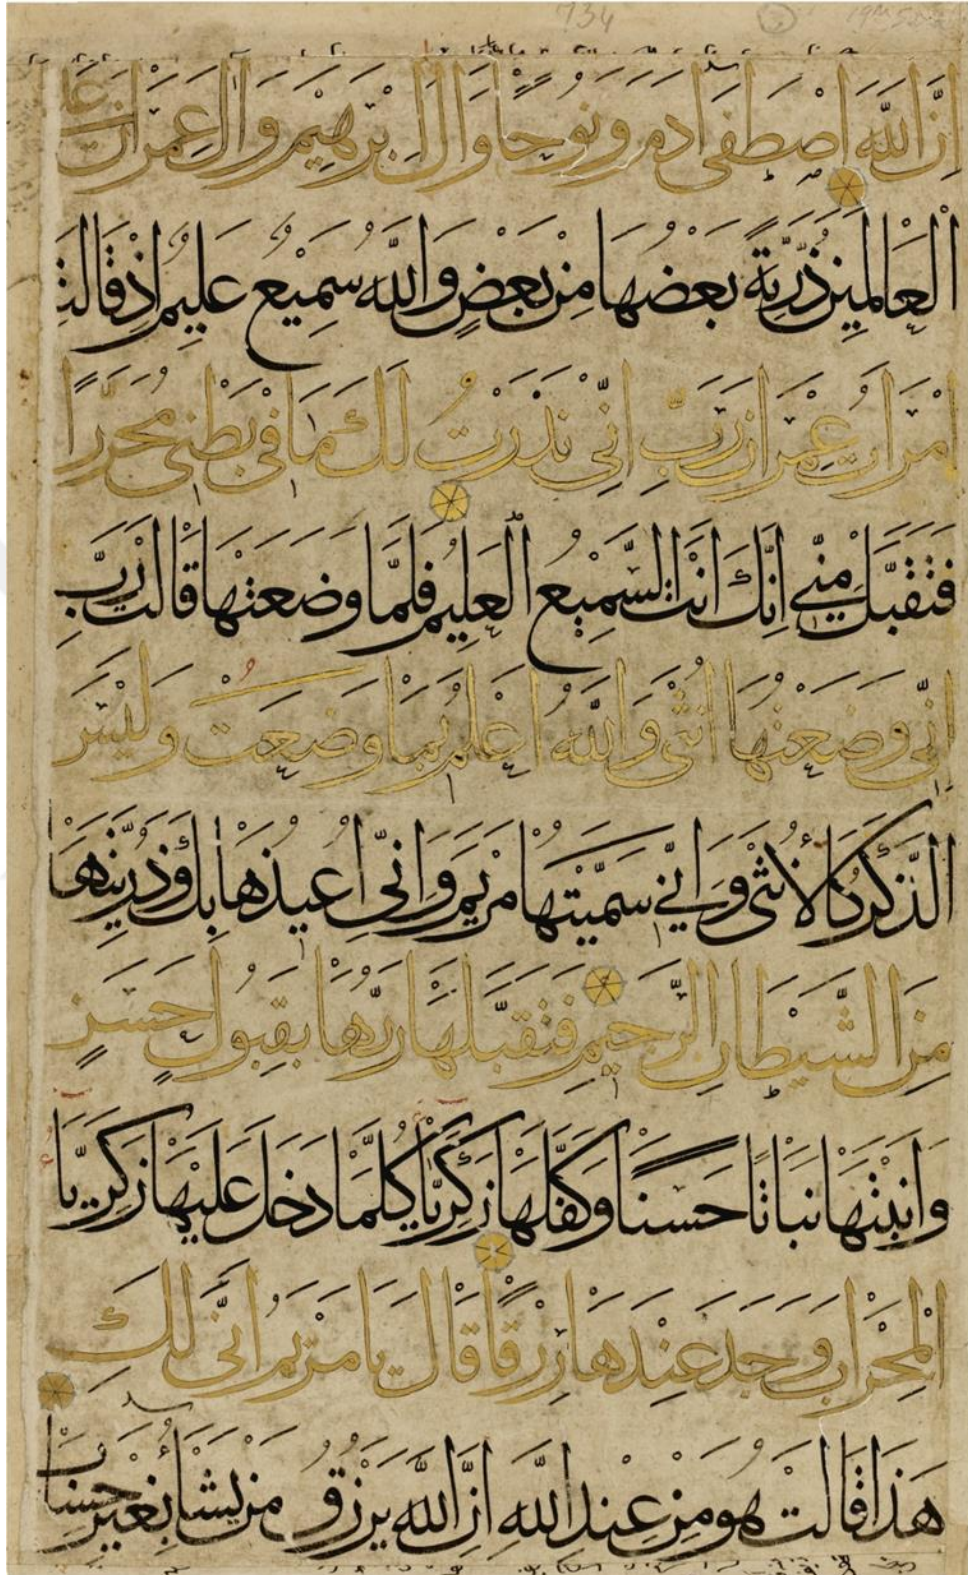 اِنَّ اللّٰهَ اصْطَفٰى اٰدَمَ وَنُوحًا وَاٰلَ اِبْرٰهِيْمَ وَاٰلَ عِمْرَانَ عَلَى
الْعَالَمِيْنَ ذُرِّيَّةً بَعْضُهَا مِنْ بَعْضٍ وَاللّٰهُ سَمِيْعٌ عَلِيْمٌ اِذْ قَالَتْ
امْرَاَتُ عِمْرَانَ رَبِّ اِنِّىْ نَذَرْتُ لَكَ مَا فِىْ بَطْنِىْ مُحَرَّرًا
فَتَقَبَّلْ مِنِّىْ اِنَّكَ اَنْتَ السَّمِيْعُ الْعَلِيْمُ فَلَمَّا وَضَعَتْهَا قَالَتْ رَبِّ
اِنِّىْ وَضَعْتُهَا اُنْثٰى وَاللّٰهُ اَعْلَمُ بِمَا وَضَعَتْ وَلَيْسَ
الذَّكَرُ كَالْاُنْثٰى وَاِنِّىْ سَمَّيْتُهَا مَرْيَمَ وَاِنِّىْ اُعِيْذُهَا بِكَ وَذُرِّيَّتَهَا
مِنَ الشَّيْطَانِ الرَّجِيْمِ فَتَقَبَّلَهَا رَبُّهَا بِقَبُوْلٍ حَسَنٍ
وَاَنْبَتَهَا نَبَاتًا حَسَنًا وَكَفَّلَهَا زَكَرِيَّا كُلَّمَا دَخَلَ عَلَيْهَا زَكَرِيَّا
الْمِحْرَابَ وَجَدَ عِنْدَهَا رِزْقًا قَالَ يَا مَرْيَمُ اَنّٰى لَكِ
هَذَا قَالَتْ هُوَ مِنْ عِنْدِ اللّٰهِ اِنَّ اللّٰهَ يَرْزُقُ مَنْ يَشَآءُ بِغَيْرِ حِسَابٍ